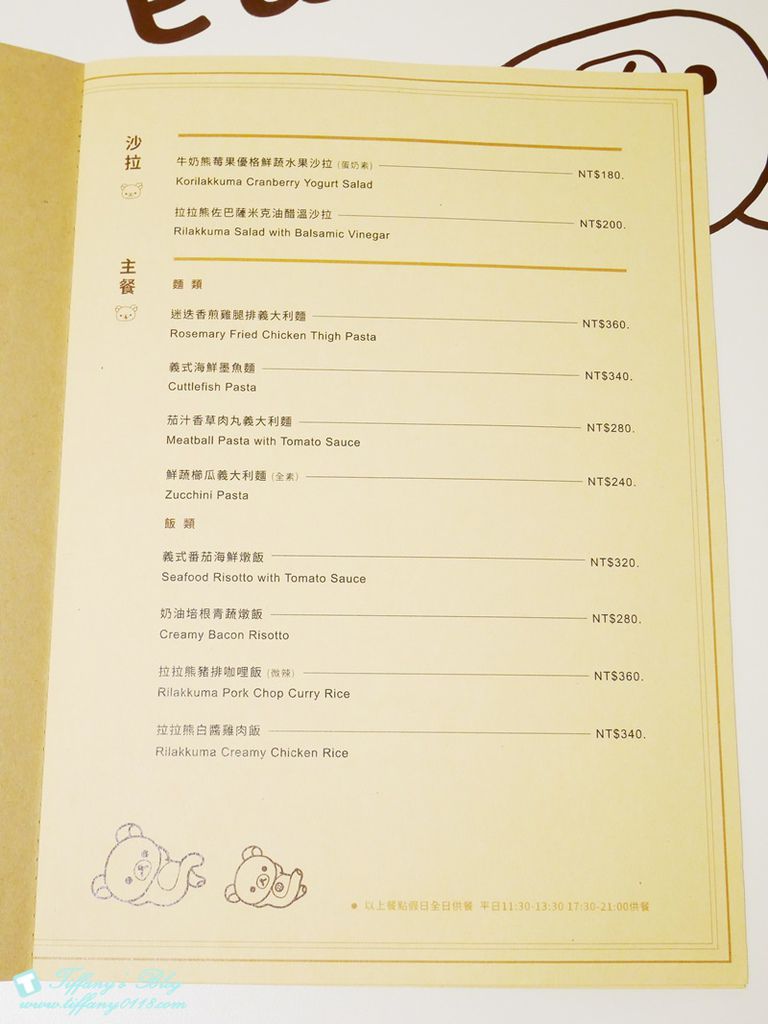 沙拉
牛奶熊莓果優格鮮蔬水果沙拉 (蛋奶素) NT$180.
Korilakkuma Cranberry Yogurt Salad
拉拉熊佐巴薩米克油醋溫沙拉 NT$200.
Rilakkuma Salad with Balsamic Vinegar
主餐
麵 類
迷迭香煎雞腿排義大利麵 NT$360.
Rosemary Fried Chicken Thigh Pasta
義式海鮮墨魚麵 NT$340.
Cuttlefish Pasta
茄汁香草肉丸義大利麵 NT$280.
Meatball Pasta with Tomato Sauce
鮮蔬櫛瓜義大利麵 (全素) NT$240.
Zucchini Pasta
飯 類
義式番茄海鮮燉飯 NT$320.
Seafood Risotto with Tomato Sauce
奶油培根青蔬燉飯 NT$280.
Creamy Bacon Risotto
拉拉熊豬排咖哩飯 (微辣) NT$360.
Rilakkuma Pork Chop Curry Rice
拉拉熊白醬雞肉飯 NT$340.
Rilakkuma Creamy Chicken Rice
● 以上餐點假日全日供餐 平日11:30-13:30 17:30-21:00供餐
T Tiffany's Blog
www.tiffany0118.com